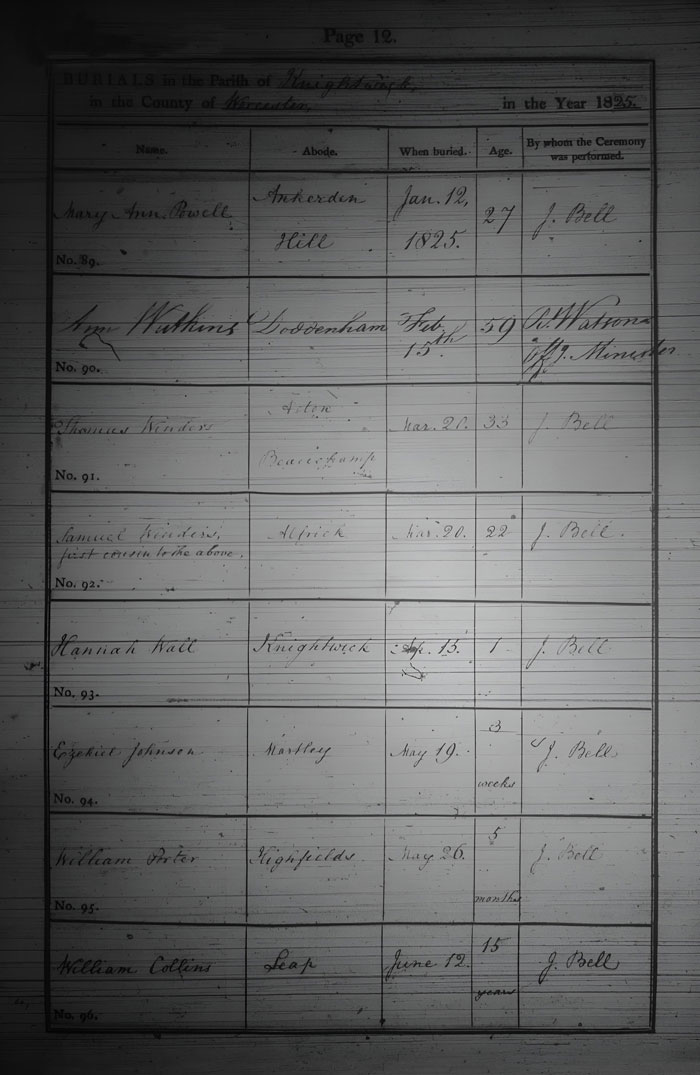 Page 12.
BURIALS in the Parish of Knightwick,
in the County of Worcester, in the Year 1825.
Name. Abode. When buried. Age. By whom the Ceremony was performed.
Mary Ann Powell Ankerden Hill Jan. 12, 1825. 27 J. Bell
No. 89.
Ann Watkins Doddenham Feb. 15th 59 Watson Offg. Minister
No. 90.
Thomas Winders Acton Beauchamp Mar. 20. 33 J. Bell
No. 91.
Samuel Winders, Alfrick Mar. 20. 22 J. Bell.
first cousin to the above.
No. 92.
Hannah Wall Knightwick Ap. 15. 1 J. Bell
No. 93.
Ezekiel Johnson Martley May 19. 3 weeks J. Bell
No. 94.
William Porter Highfields May 26. 5 months J. Bell
No. 95.
William Collins Leap June 12. 15 years J. Bell
No. 96.